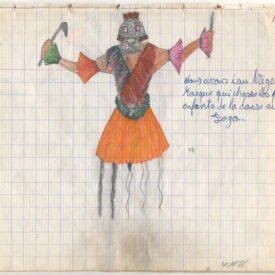 Nous avons i au Nige
Masque qui chasse les
enfants de la danse au
Dogon